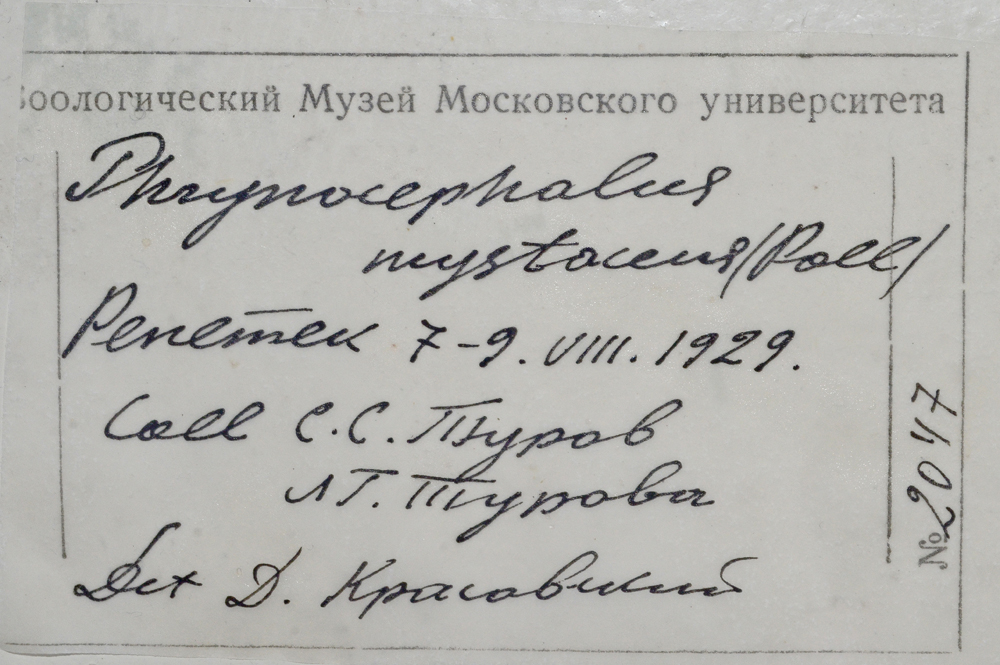 Зоологический Музей Московского университета
Phrynocephalus
mystaceus (Pall)
Репетек 7-9. VIII. 1929.
Coll С.С. Туров
Л.Г. Турова
Det Д. Красовский
№ 2047